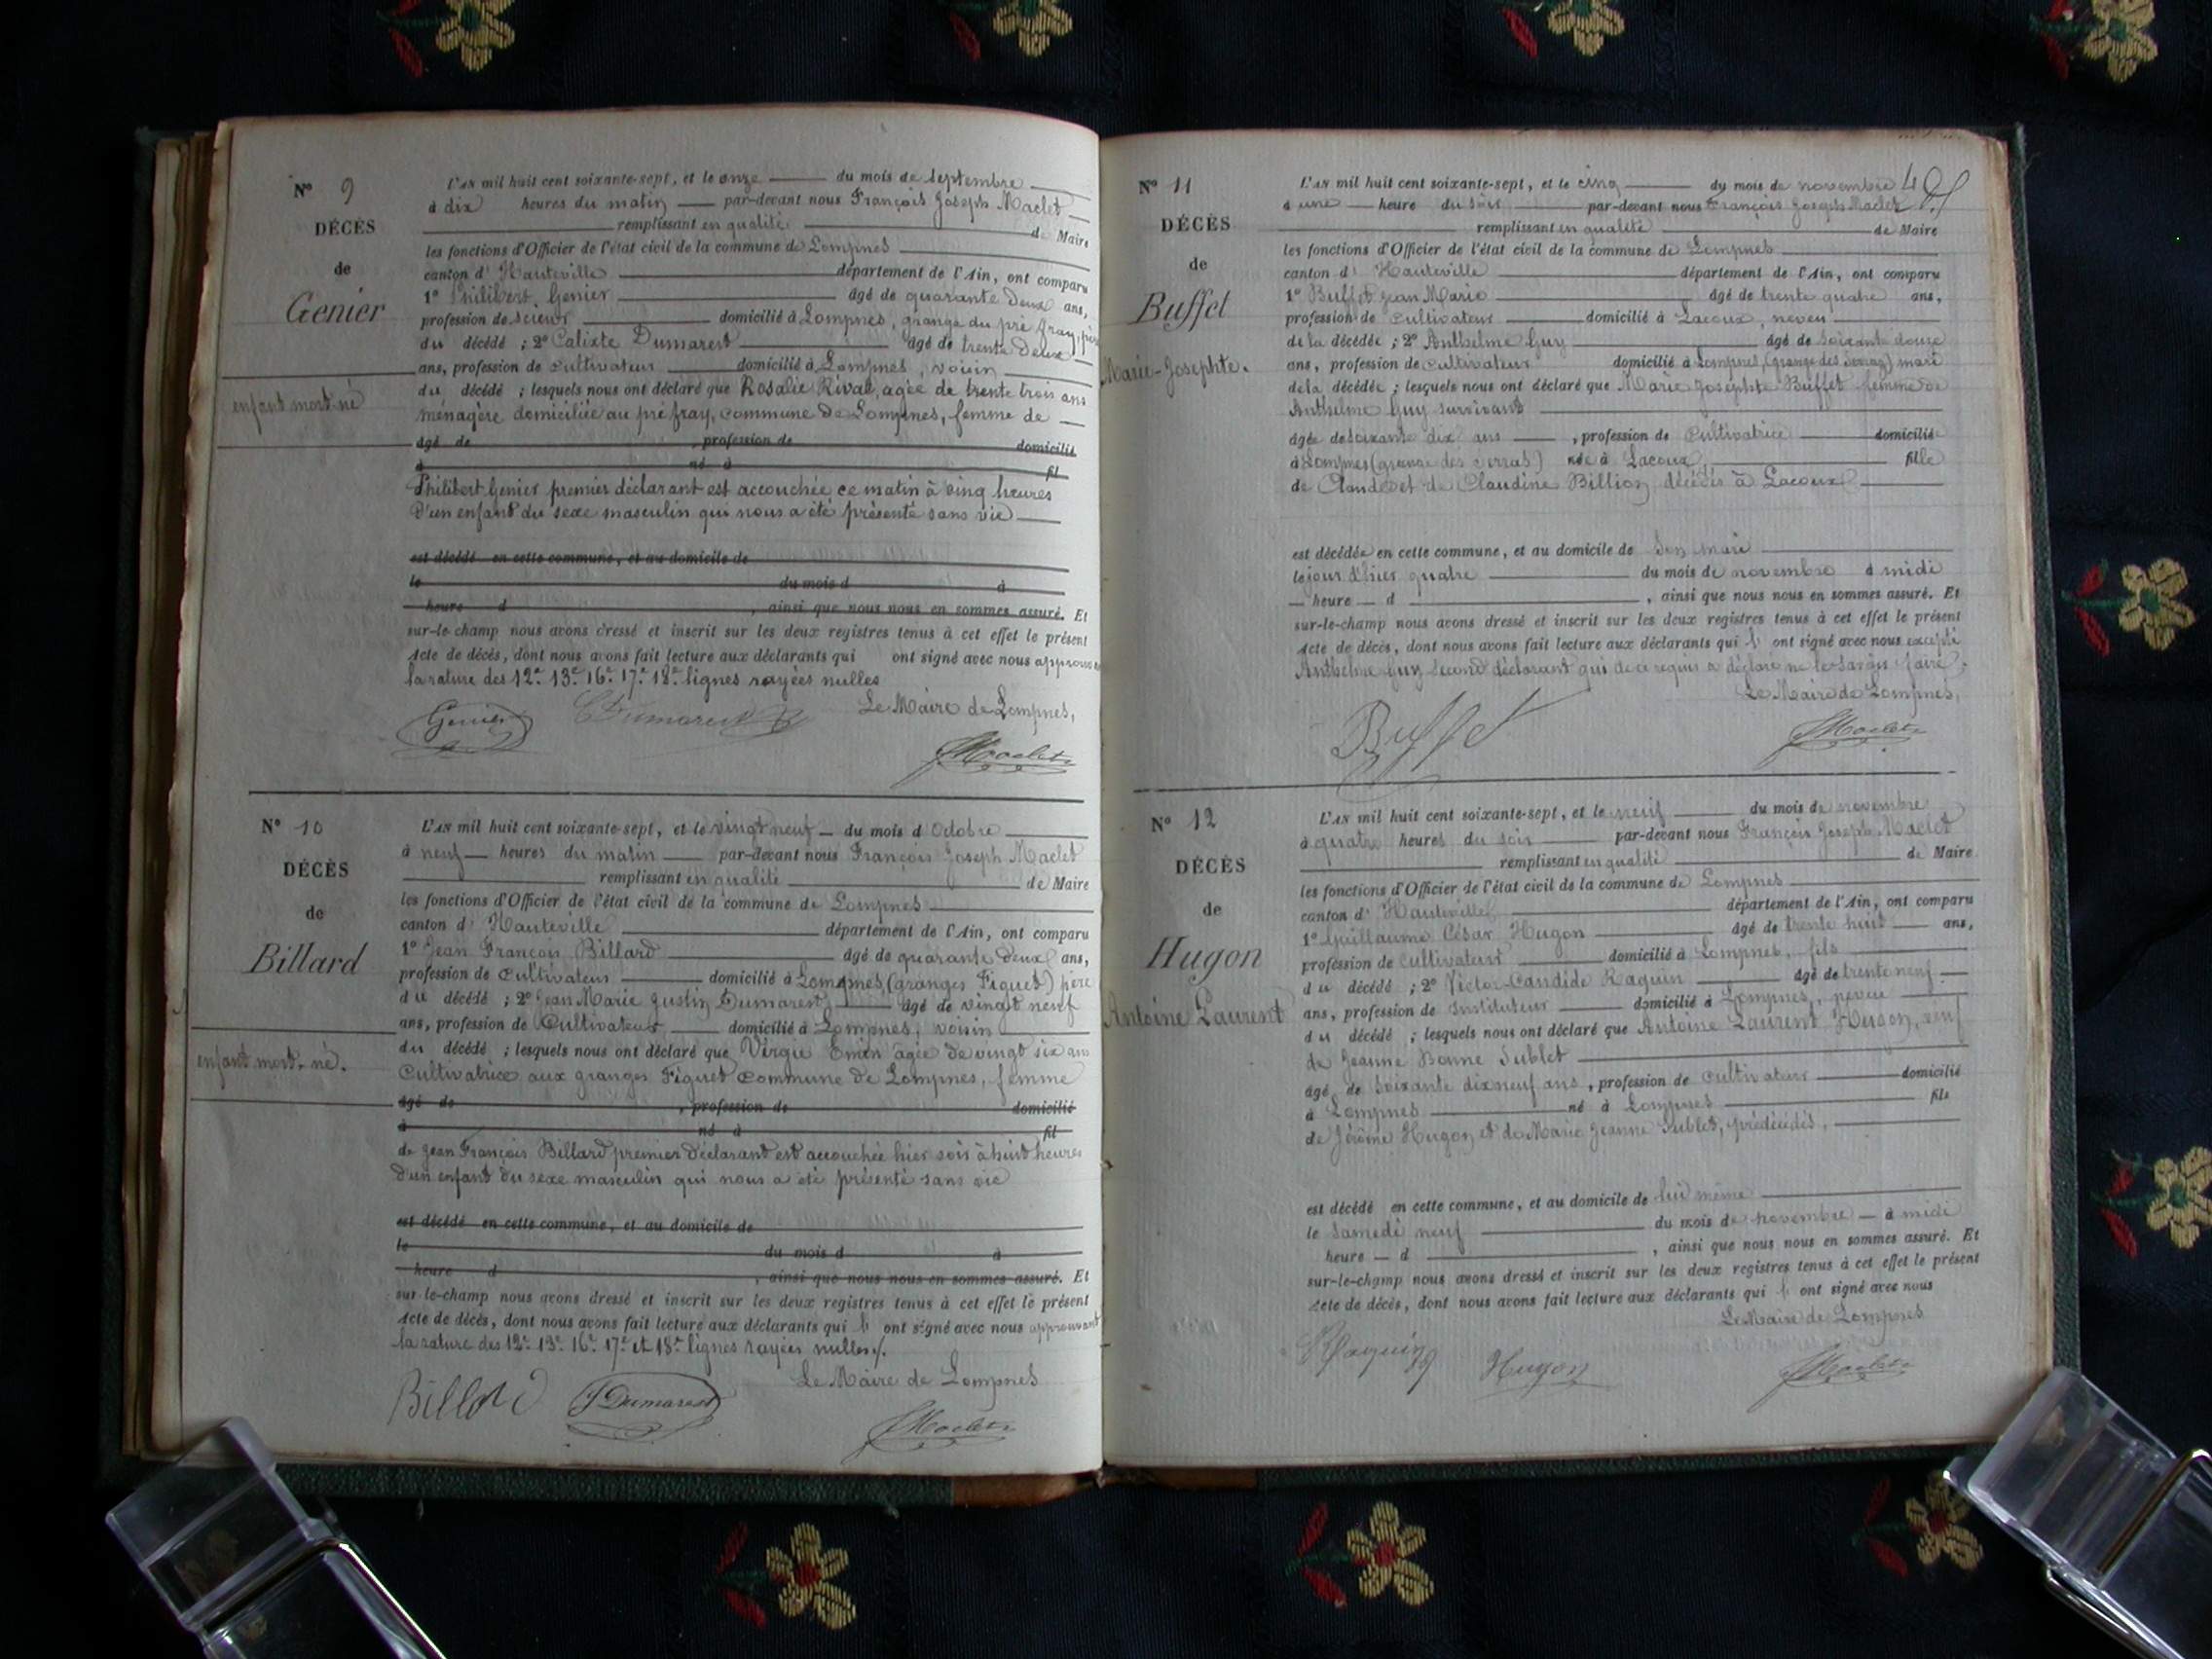 N° 9
DÉCÈS
de
Genier
enfant mort né
L'AN mil huit cent soixante-sept, et le onze du mois de Septembre
à dix heures du matin par-devant nous François Joseph Maclet
remplissant en qualité de Maire
les fonctions d'Officier de l'état civil de la commune de Lompnes
canton d' Hauteville département de l'Ain, ont comparu
1° Philibert Genier âgé de quarante deux ans,
profession de scieur domicilié à Lompnes, grange du pré fray, père
du décédé ; 2° Calixte Dumarest âgé de trente deux
ans, profession de Cultivateur domicilié à Lompnes, voisin
du décédé ; lesquels nous ont déclaré que Rosalie Rival, agée de trente trois ans
ménagère domiciliée au pré fray, commune de Lompnes, femme de
âgé de , profession de domicilié
à né à fil
Philibert Genier premier déclarant est accouchée ce matin à cinq heures
d'un enfant du sexe masculin qui nous a été présenté sans vie
est décédé en cette commune, et au domicile de
le du mois d à
heure d , ainsi que nous nous en sommes assuré. Et
sur-le-champ nous avons dressé et inscrit sur les deux registres tenus à cet effet le présent
Acte de décès, dont nous avons fait lecture aux déclarants qui ont signé avec nous
la rature des 12e 13e 16e 17e 18e lignes rayées nulles
Le Maire de Lompnes,
Genier Dumarest
Maclet
N° 10
DÉCÈS
de
Billard
enfant mort-né.
L'AN mil huit cent soixante-sept, et le vingt neuf du mois d Octobre
à neuf heures du matin par-devant nous François Joseph Maclet
remplissant en qualité de Maire
les fonctions d'Officier de l'état civil de la commune de Lompnes
canton d' Hauteville département de l'Ain, ont comparu
1° Jean François Billard âgé de quarante deux ans,
profession de Cultivateur domicilié à Lompnes, (granges Figuet) père
du décédé ; 2° Jean Marie Justin Dumarest âgé de vingt neuf
ans, profession de Cultivateur domicilié à Lompnes, voisin
du décédé ; lesquels nous ont déclaré que Virgie Emin âgée de vingt six ans
Cultivatrice aux granges Figuet commune de Lompnes, femme
âgé de , profession de domicilié
à né à fil
de Jean François Billard premier déclarant est accouchée hier soir à huit heures
d'un enfant du sexe masculin qui nous a été présenté sans vie
est décédé en cette commune, et au domicile de
le du mois d à
heure d , ainsi que nous nous en sommes assuré. Et
sur-le-champ nous avons dressé et inscrit sur les deux registres tenus à cet effet le présent
Acte de décès, dont nous avons fait lecture aux déclarants qui ont signé avec nous approuvant
la rature des 12e 13e 16e 17e et 18e lignes rayées nulles.
Le Maire de Lompnes
Billard J Dumarest
Maclet
N° 11
DÉCÈS
de
Buffet
Marie-Josephte.
L'AN mil huit cent soixante-sept, et le cinq du mois de novembre
à une heure du soir par-devant nous François Joseph Maclet
remplissant en qualité de Maire
les fonctions d'Officier de l'état civil de la commune de Lompnes
canton d' Hauteville département de l'Ain, ont comparu
1° Buffet Jean Marie âgé de trente quatre ans,
profession de Cultivateur domicilié à Lacoux, neveu
de la décédée ; 2° Anthelme Guy âgé de soixante douze
ans, profession de cultivateur domicilié à Lompnes, (grange des Serras) mari
de la décédée ; lesquels nous ont déclaré que Marie Josephte Buffet femme de
Anthelme Guy survivant
âgée de soixante dix ans , profession de Cultivatrice domicilié
à Lompnes (grange des Serras) née à Lacoux fille
de Claude et de Claudine Billion, décédés à Lacoux
est décédée en cette commune, et au domicile de son mari
le jour d'hier quatre du mois de novembre à midi
heure d , ainsi que nous nous en sommes assuré. Et
sur-le-champ nous avons dressé et inscrit sur les deux registres tenus à cet effet le présent
Acte de décès, dont nous avons fait lecture aux déclarants qui ont signé avec nous excepté
Anthelme Guy second déclarant qui de ce requis a déclaré ne le savoir faire.
Le Maire de Lompnes,
Buffet
Maclet
N° 12
DÉCÈS
de
Hugon
Antoine Laurent
L'AN mil huit cent soixante-sept, et le neuf du mois de novembre
à quatre heures du soir par-devant nous François Joseph Maclet
remplissant en qualité de Maire
les fonctions d'Officier de l'état civil de la commune de Lompnes
canton d' Hauteville département de l'Ain, ont comparu
1° Guillaume César Hugon âgé de trente huit ans,
profession de Cultivateur domicilié à Lompnes, fils
du décédé ; 2° Victor Candide Raguin âgé de trente neuf
ans, profession de Instituteur domicilié à Lompnes, neveu
du décédé ; lesquels nous ont déclaré que Antoine Laurent Hugon, veuf
de Jeanne Bonne Sublet
âgé de soixante dix neuf ans , profession de cultivateur domicilié
à Lompnes né à Lompnes fils
de Jérôme Hugon et de Marie Jeanne Sublet, prédécédés,
est décédé en cette commune, et au domicile de lui même
le samedi neuf du mois de novembre à midi
heure d , ainsi que nous nous en sommes assuré. Et
sur-le-champ nous avons dressé et inscrit sur les deux registres tenus à cet effet le présent
Acte de décès, dont nous avons fait lecture aux déclarants qui ont signé avec nous
Le Maire de Lompnes
Raguin Hugon
Maclet